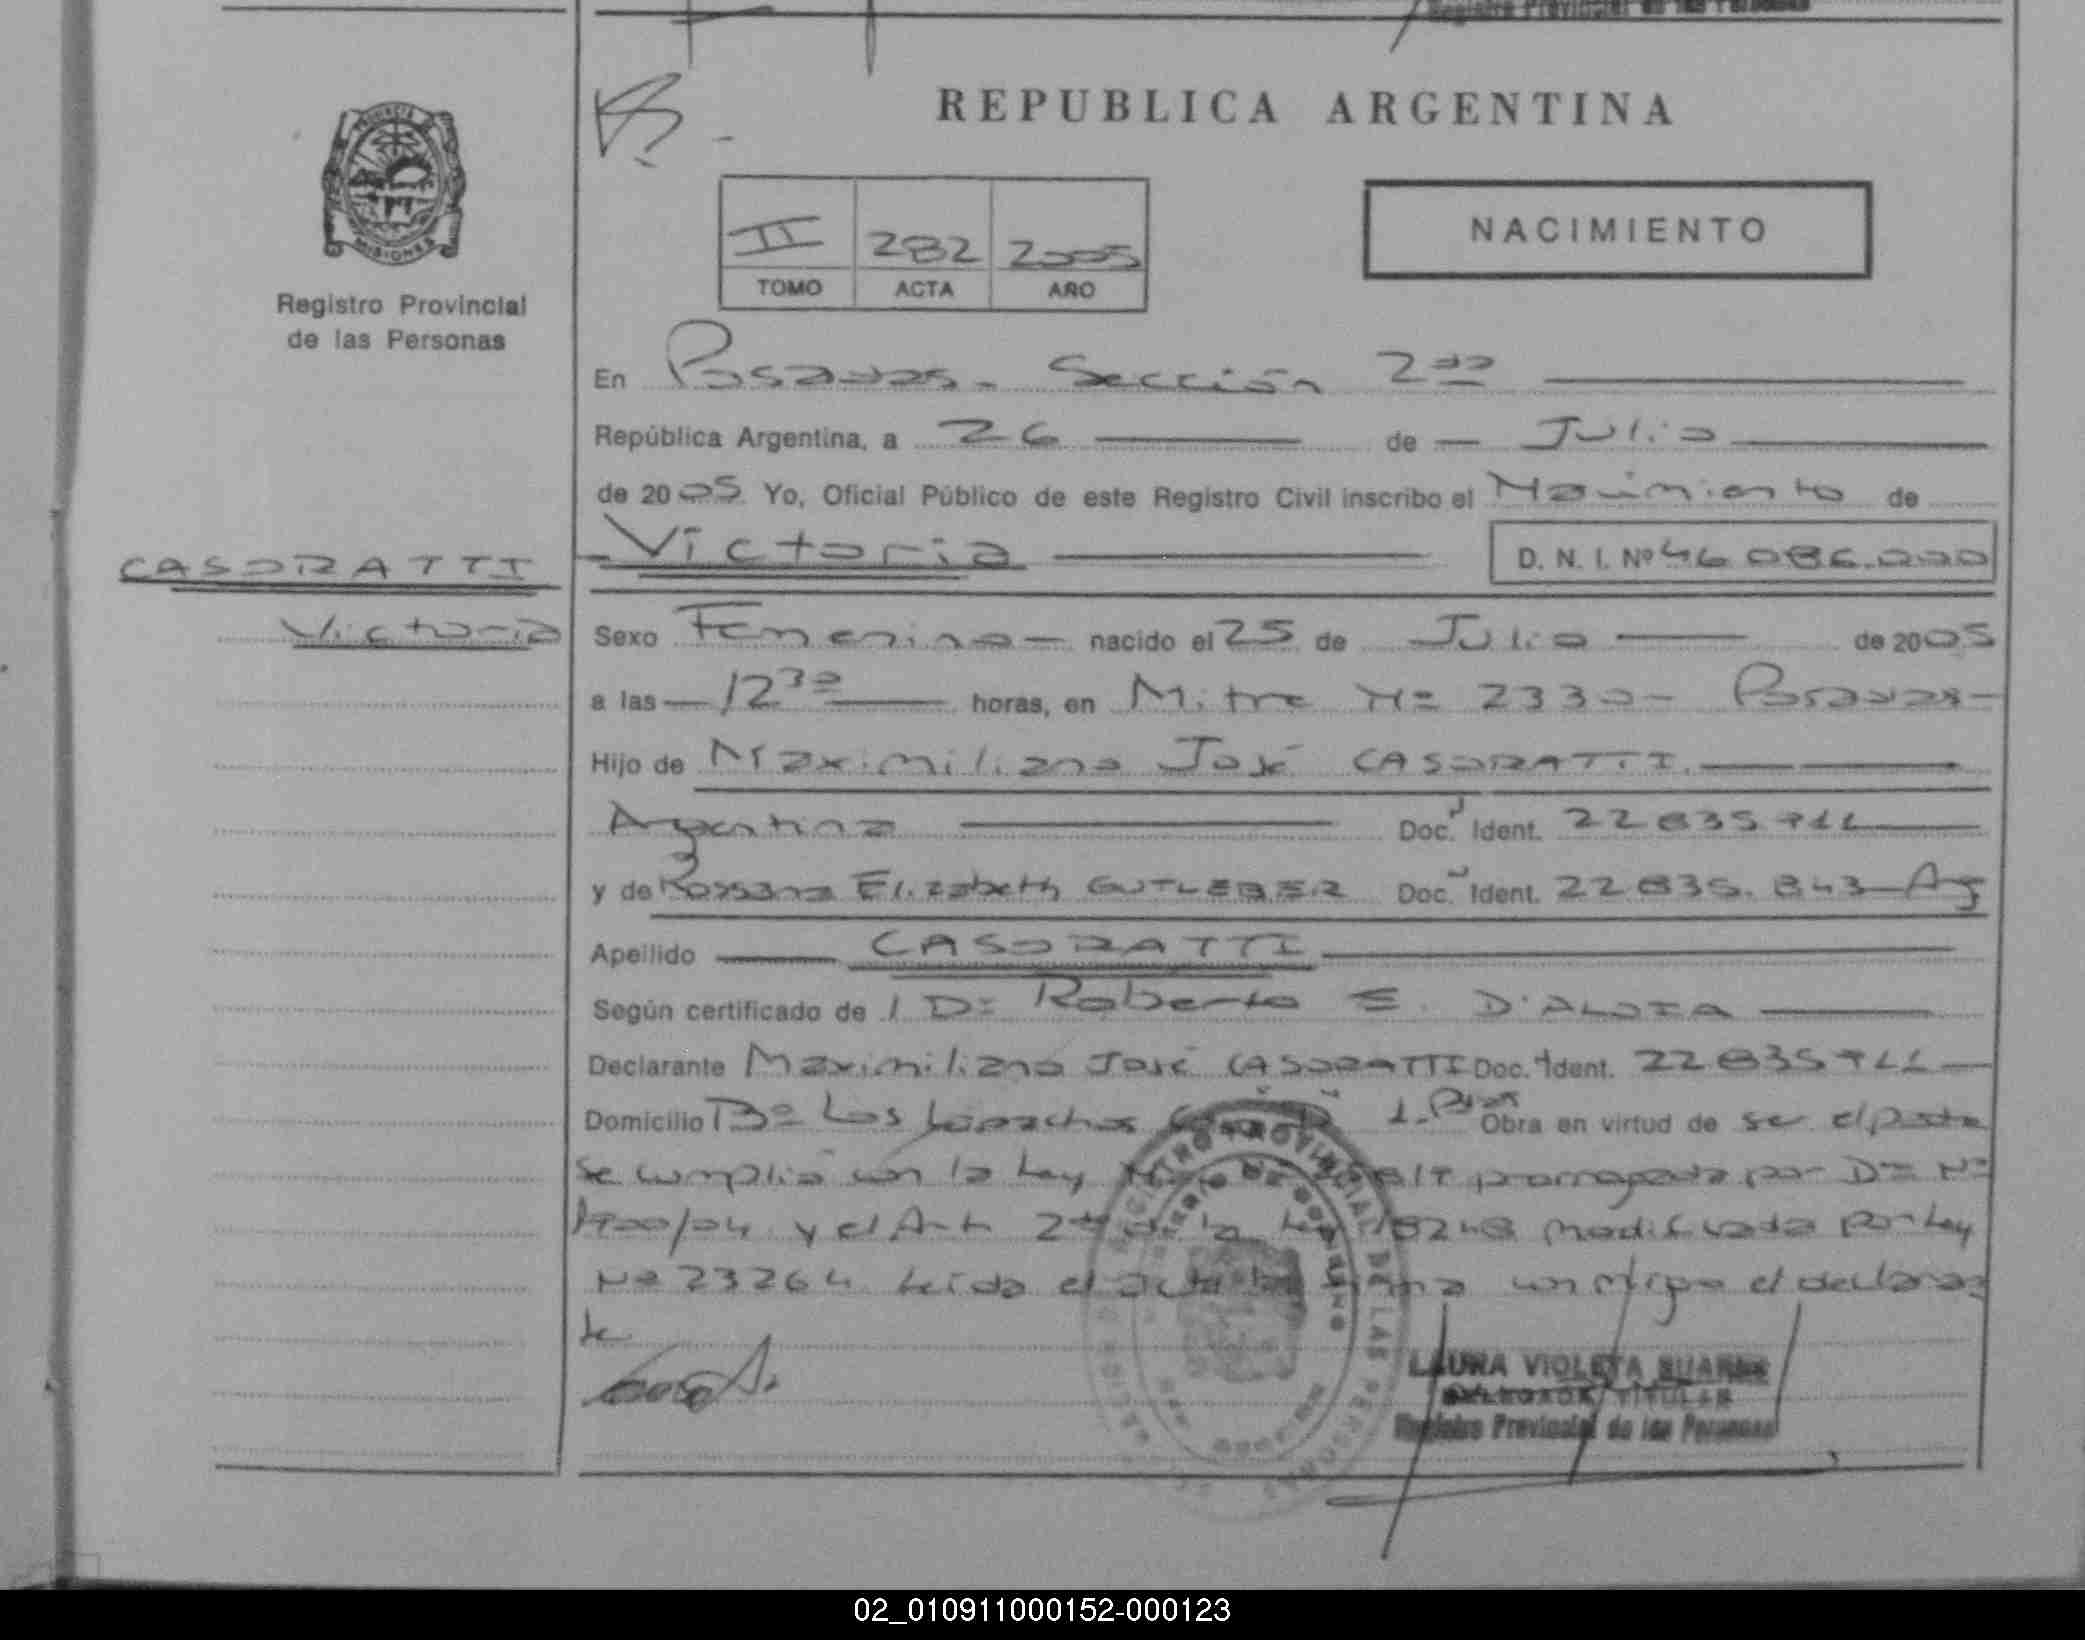 REPUBLICA ARGENTINA
PROVINCIA DE
MISIONES
Registro Provincial
de las Personas
II 282 2005
TOMO ACTA AÑO
NACIMIENTO
En Posadas - Sección 2da
República Argentina, a 26 de Julio
de 2005 Yo, Oficial Público de este Registro Civil inscribo el Nacimiento de
CASORATTI
Victoria
Victoria D. N. I. Nº 46.086.000
Sexo Femenino nacido el 25 de Julio de 2005
a las 12 30 horas, en Mitre Nº 2330 - Posadas -
Hijo de Maximiliano José CASORATTI
Argentina Doc. Ident. 22 835 711
y de Rossana Elizabeth GUTLEBER Doc. Ident. 22 835. 843 Arg
Apellido CASORATTI
Según certificado de 1 Dr Roberto E. D'ALOIA
Declarante Maximiliano José CASORATTI Doc. Ident. 22 835 711
Domicilio Bº Los Lapachos 1. Pdas Obra en virtud de ser el padre
Se cumplió con la Ley prorrogada por Dto Nº
1900/04 y el Art. 2do de la Ley 18248 modificada por Ley
Nº 23264 Leída el acta la firma conmigo el declaran
te
LAURA VIOLETA SUAREZ
DELEGADA TITULAR
Registro Provincial de las Personas
02_010911000152-000123